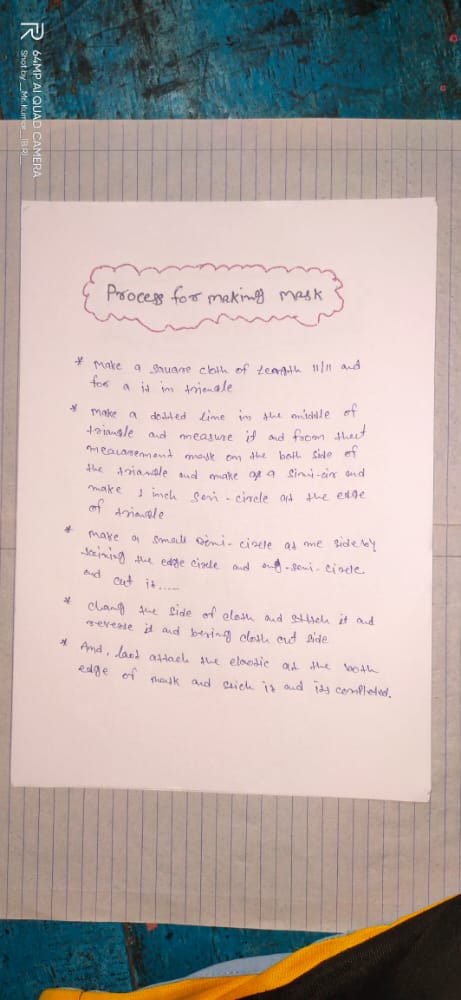 64MP AI QUAD CAMERA
Shot by _Mr. Kumar_
Process for making mask
* make a square cloth of length 11/11 and
for a it in triangle
* make a dotted line in the middle of
triangle and measure it and from that
measurement mask on the both side of
the triangle and make a and
make 1 inch semi-circle at the edge
of triangle
* make a small semi-circle at one side by
the edge circle and semi-circle
and cut it.....
* chang the side of cloth and stitch it and
reverse it and bering cloth out side
* And, last attach the elastic at the both
edge of mask and stich it and its completed.